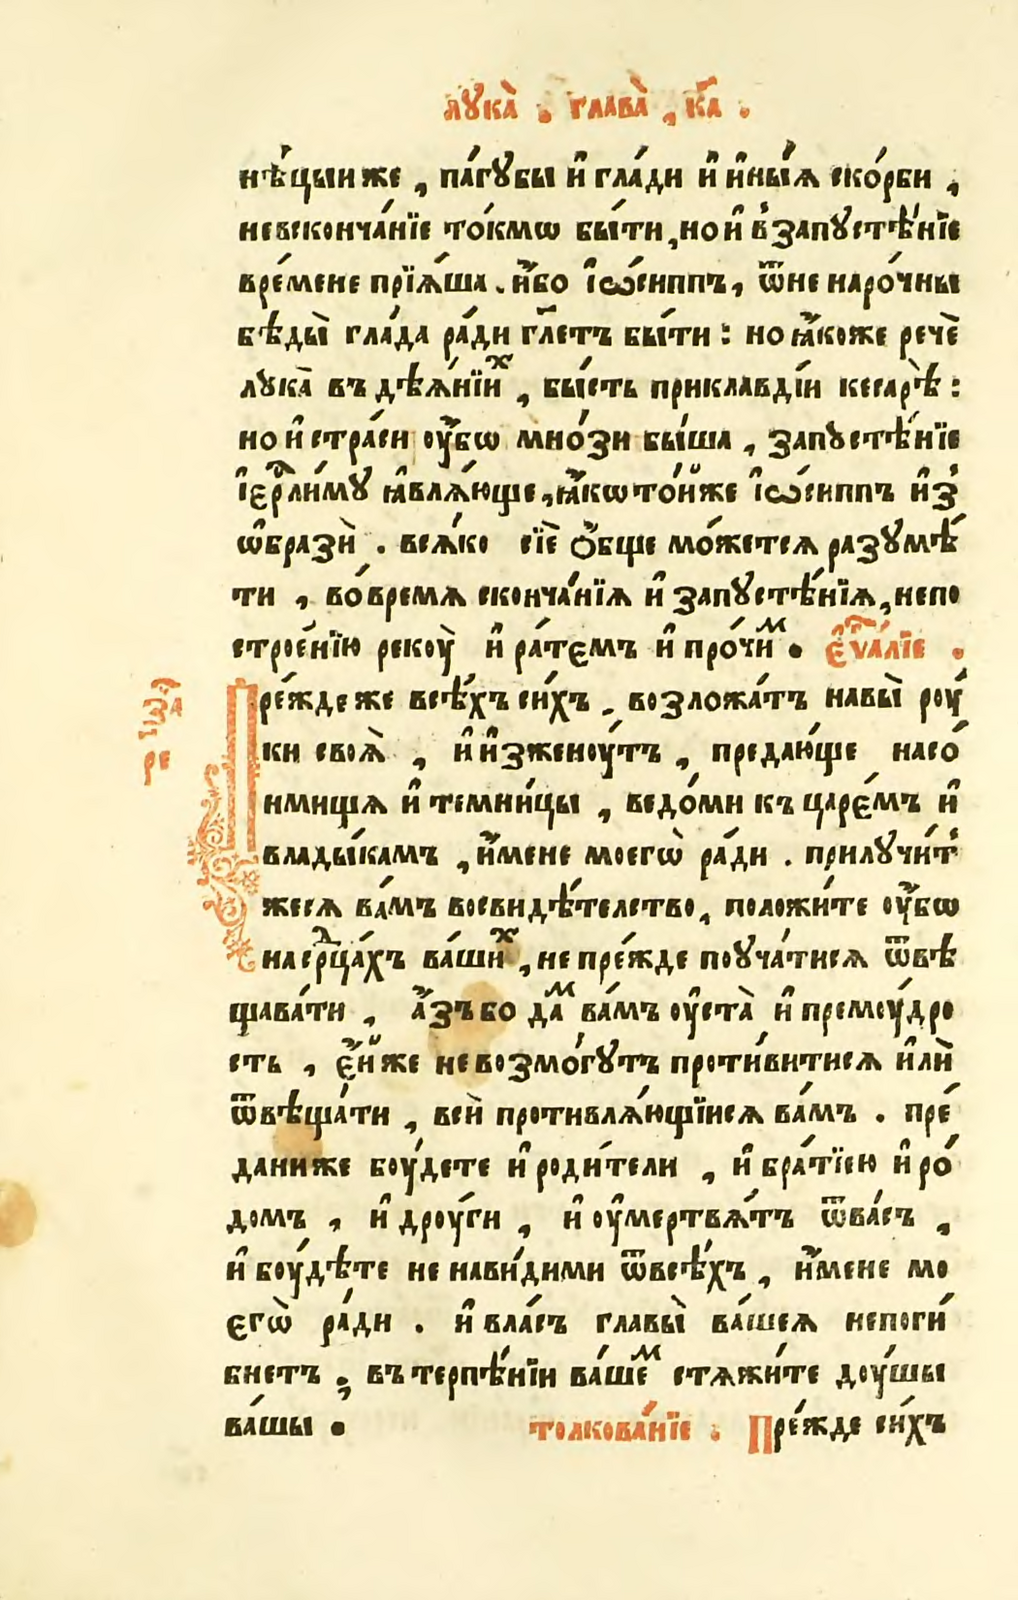 лꙋка̀ . глава̀ , к҃а .
нѣ́цыи же , па́гꙋбы и҆ гла́ди и҆ и҆ны́ѧ ско́рби ,
невсконча́нїе то́кмѡ бы́ти , но и҆ в̾запꙋстѣ́нїе
вре́мене прїѧ́ша . и҆́бо і҆ѡ́сиппъ , ѿне наро́чны
бѣды̀ гла́да ра́ди гл҃етъ бы́ти : но ꙗ҆́коже речѐ
лꙋка̀ въ дѣѧ́нїиⷯ , бы́сть приклавді́и кесарѣ̀ :
но и҆ стра́сн оу҆́бѡ мно́зи бы́ша , запꙋстѣ́нїе
і҆ерⷭ҇ли́мꙋ ꙗ҆влѧ́юще , ꙗ҆́кѡ то́йже і҆ѡ́сиппъ и҆з̾
ѡ҆бразѝ . всѧ́ко сїѐ ѻ҆́бще мо́жетсѧ разꙋмѣ́
ти , во́времѧ сконча́нїѧ и҆ запꙋстѣ́нїѧ , непо
строе́нїю рекоу̀ и҆ ра́темъ и҆ про́чиⷨ . є҆ѵⷢ҇а́лїе .
Пре́жде же всѣ́хъ си́хъ , возложа́тъ навы̀ роу́
за҃ч рз҃ ре
ки своѧ̀ , и҆ и҆зженоу́тъ , предаю́ще насо́
нмища и҆ темни́цы , ведо́ми къ царе́мъ и҆
влады́камъ , и҆́мене моегѡ̀ ра́ди . прилꙋчи́т̾
жесѧ ва́мъ восвидѣ́телство , положи́те оу҆́бѡ
на срⷣца́хъ ва́шиⷯ , не пре́жде поꙋча́тисѧ ѿвѣ
щава́ти , а҆́зъ бо даⷨ ва́мъ оу҆ста̀ и҆ премоу́дро
сть , є҆́йже не возмо́гꙋтъ проти́витисѧ и҆лѝ
ѿвѣща́ти , всѝ противлѧ́ющїисѧ ва́мъ . пре́
даниже боу́дете и҆ роди́тели , и҆ бра́тїею и҆ ро́
домъ , и҆ дроу́ги , и҆ оу҆мертвѧ́тъ ѿва́съ ,
и҆ боу́дѣте не нави́дими ѿвсѣ́хъ , и҆́мене мо
егѡ̀ ра́ди . и҆ вла́съ главы̀ ва́шеѧ непоги́
бнетъ , въ терпѣ́нїи ва́шеⷨ стѧжи́те доу́шы
ва́шы . толкова́нїе . Пре́жде си́хъ